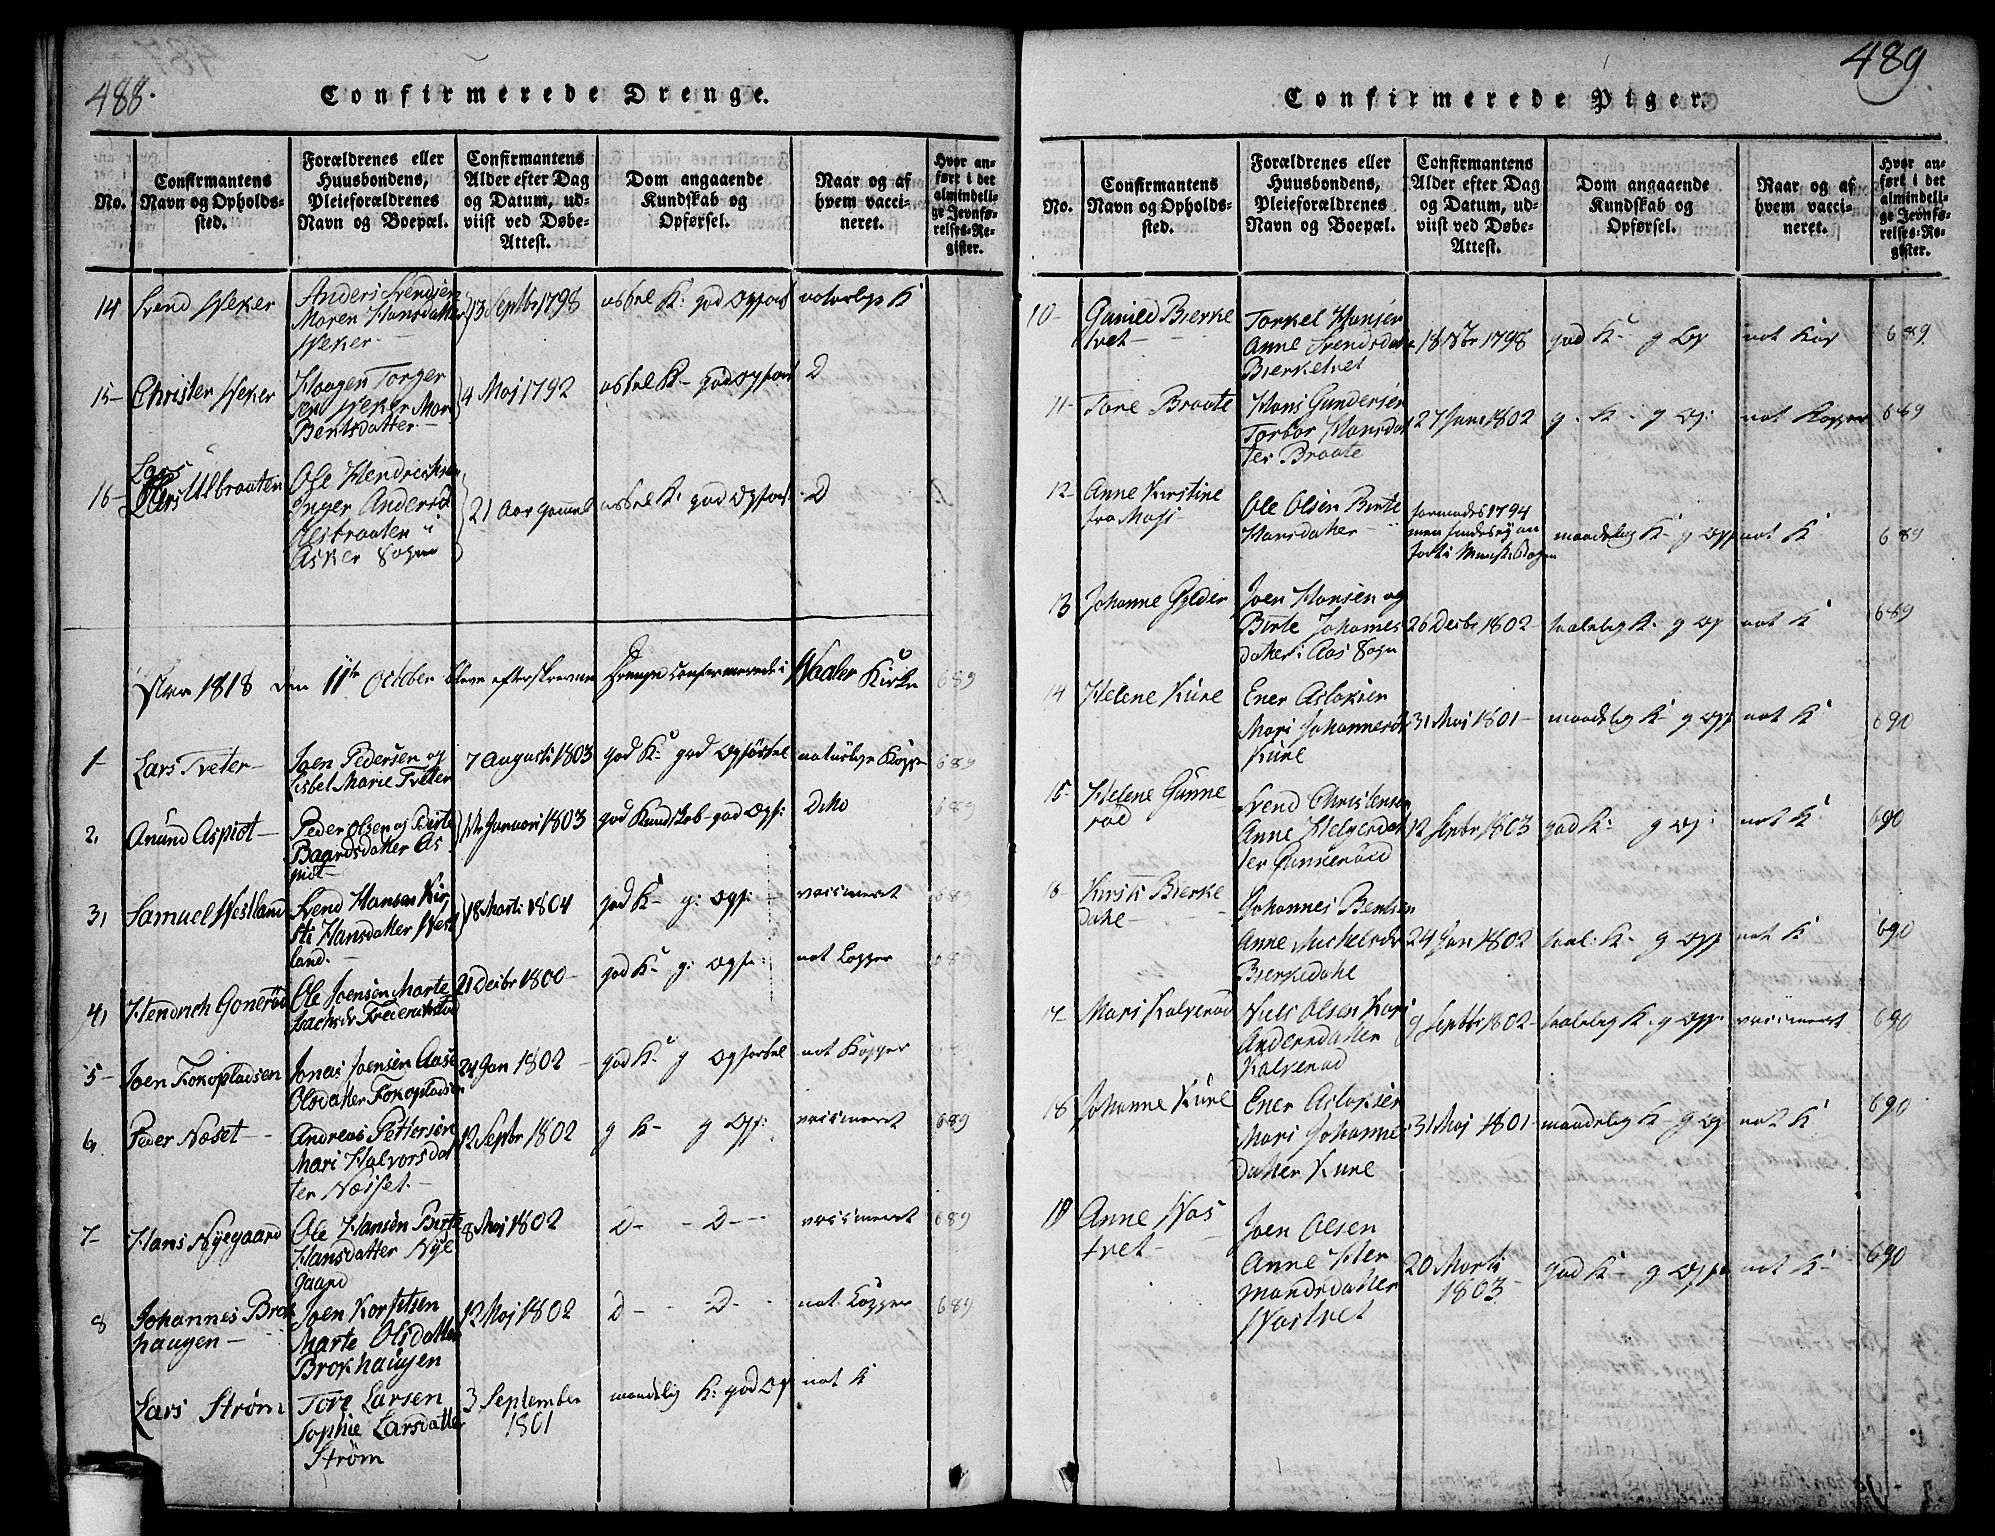 488.
Confirmerede Drenge.
No.
Confirmantens
Navn og Opholds-
sted.
Forældrenes eller
Huusbondens,
Pleieforældrenes
Navn og Boepæl.
Confirmantens
Alder efter Dag
og Datum, ud-
viist ved Døbe-
Attest.
Dom angaaende
Kundskab og
Opførsel.
Naar og af
hvem vacci-
neret.
Hvor an-
ført i det
almindeli-
ge Jevnfø-
relses-Re-
gister.
14 Svend Weker
Anders Svendsen
Maren Hansdatter
Weker
13 Septbr 1798
K: god Opførs
naturlige K
15- Christen Weker
Haagen Torger
sen Weker Mari
Bentsdatter
4 Maj 1792
K- god Opførs
D
16- Lars Ulbraaten
Ole Hendrichsen
Inger Andersd
i
Asker Sogn
21 Aar gammel
K: god Opførs.
D
1818 den 11te October bleve efterskrevne Drenge confirmerede i Waaler Kirke 689
1- Lars Tveter-
Joen Pedersen og
Lisbel Marie Tvetter
7 Augusti 1803
god K: god Opførsel
naturlige Kopper
689
2, Anund Aspiøt-
Peder Olsen og Berte
Baardsdatter As
piøt-
14 Januari 1803
god Kundskab- god Opf:
Ditto
689
3, Samuel Westland
Svend Hansen Kir
sti Hansdatter West
land.
18 Marti 1804
god K- g: Opf:
vaccineret
689
4, Hendrich Gonerød
Ole Joensen Marte
Isachsdr Frederikstad
21 Decbr 1800-
god K- g: Opf:
nat Kopper
689
5- Joen Fokopladsen
Jonas Joensen Aase
Olsdatter Fokopladsen
24 Jan 1802-
god K: g Opførsel
nat Kopper
6, Peder Næset-
Andreas Pettersen
Mari Halvorsdat
ter Næsset.-
12 Septbr 1802
g K- g Opf:
vaccineret
689
7- Hans Nyegaard
Ole Hansen Birte
Hansdatter Nye
gaard
8 Maj 1802
D- - D-
vaccineret
689
8 Johannes Brok
haugen-
Joen Korstsen
Marte Olsdatter
Brokhaugen
12 Maj 1802
D- D-
nat. Kopper
689
Lars Strøm
Tore Larsen
Sophie Larsdatter
Strøm
3 September
1801
maadelig K: god Op
nat K
489
Confirmerede Piger.
No.
Confirmantens
Navn og Opholds-
sted.
Forældrenes eller
Huusbondens,
Pleieforældrenes
Navn og Boepæl.
Confirmantens
Alder efter Dag
og Datum, ud-
viist ved Døbe-
Attest.
Dom angaaende
Kundskab og
Opførsel.
Naar og af
hvem vacci-
neret.
Hvor an-
ført i det
almindeli-
ge Jevnfø-
relses-Re-
gister.
10- Gunild Bierke
tvet-
Torkel Hansen
Anne Svendsdat
Bierketvet
18 Nbr 1798
god K- g Op
nat Kop
689
11- Tore Braate
Hans Gundersen
Torbor Hansdat
ter Braate
27 Juni 1802
g. K- g Op:
nat Kopper
689
12- Anne Kirstine
fra Moss-
Ole Olsen Birte
Hansdatter
formodes 1794
men findes ej an
ført i Ministb.
maadelig K- g Opf
nat K
689
13 Johanne Gylder
Joen Hansen og
Birte Johannes
datter i Aas Sogn
26 Decbr 1802-
taalelig K- g Op
nat K
689
14 Helene Kure
Ener Aslaksen
Mari Johannesd
Kure
31 Maj 1801-
maadelig K- g Opf
nat K
690
15- Helene Gunne
rød
Svend Christensen
Anne Helgesdat
ter Gunnerød
12 Septbr 1803
god K: g Op:
nat K
690
16- Kirsti Bierke
dahl-
Johannes Bentsen
Anne Michelsdr
Bierkedahl
24 Jan 1802
taal: K- g Opf
nat K
690
17- Mari Kalverød
Niels Olsen Kari
Andersdatter
Kalverød
9 Septbr 1802-
taalelig K. g Opf.
vaccineret
690
18 Johanne Kure
Ener Aslaksen
Mari Johannes
datter Kure
31 Maj 1801-
maadelig K- g Op
nat K
690
19 Anne Was
tvet-
Joen Olsen
Anne Her
mandsdatter
Wastvet
20 Marti
1803-
god K- g Opf
nat K-
690